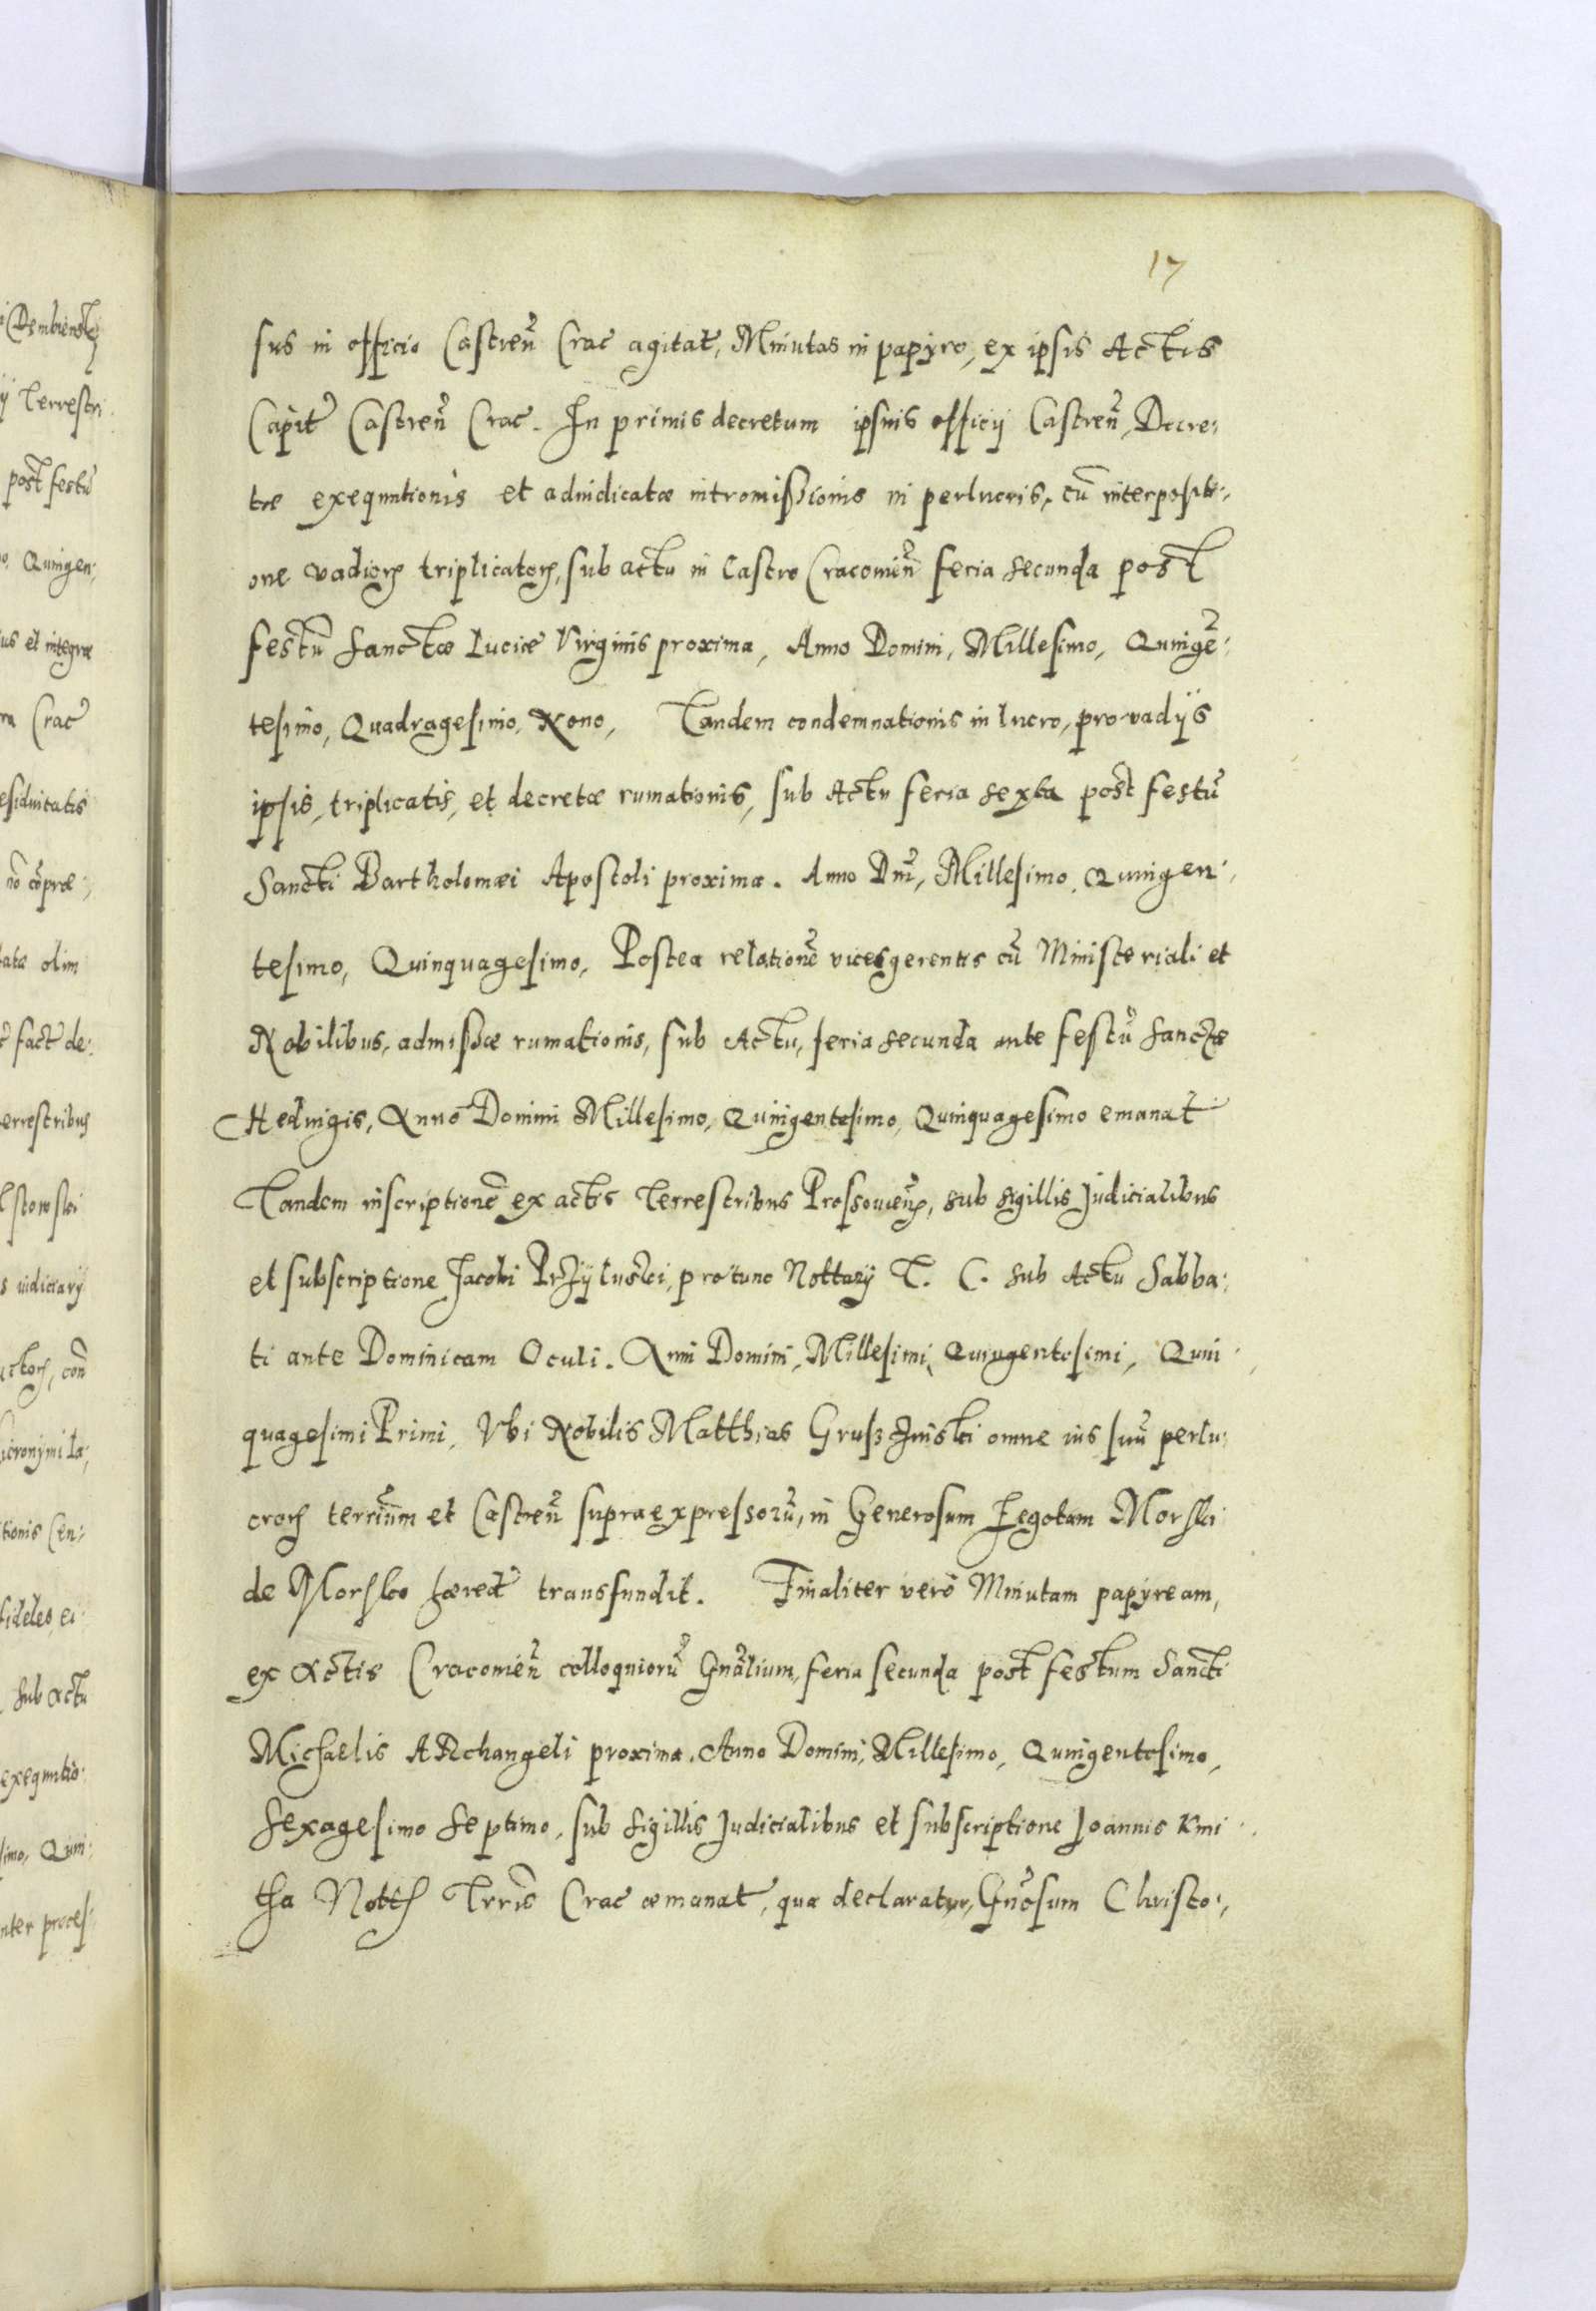 17
sus in officio Castreñ Crac̃ agitat̃, Minutas in papyro, ex ipsis Actis
Capit̃ Castreñ Crac̃. In primis decretum ipsius officij Castreñ, Decre:
tæ exequutionis et adiudicatæ intromissionis in perlucris, cũ interpositi:
one vadiorꝝ triplicatorꝝ, sub actu in Castro Cracovieñ feria secunda post
festũ Sanctæ Luciæ Virginis proxima, Anno Domini, Millesimo, Quingẽ:
tesimo, Quadragesimo, Nono, Tandem condemnationis in lucro, pro vadijs
ipsis, triplicatis, et decretæ rumationis, sub Actu feria sexta post festũ
Sancti Bartholomæi Apostoli proxima. Anno Dñi, Millesimo, Quingen:
tesimo, Quinquagesimo, Postea relationẽ vicesgerentis cũ Ministeriali et
Nobilibus, admissæ rumationis, sub Actu, feria secunda ante festũ Sanctæ
Heduigis, Anno Domini Millesimo, Quingentesimo, Quinquagesimo emanat̃
Tandem inscriptionẽ ex actis Terrestribus Prossovieñ, sub sigillis Judicialibus
et subscriptione Jacobi Przyluski, pro tunc Nottarij T. C. sub Actu Sabba:
ti ante Dominicam Oculi. Anni Domini, Millesimi, Quingentesimi, Quin:
quagesimi Primi, Vbi Nobilis Matthias Gruszczinski omne ius suũ perlu:
crorꝝ terr̃ium et Castreñ supra expressorũ, in Generosum Zegotam Morski
de Morsko hæred̃ transfundit. Finaliter verò Minutam papyream,
ex Actis Cracovieñ colloquiorũ Gñalium, feria secunda post festum Sancti
Michaelis ARchangeli proxima. Anno Domini, Millesimo, Quingentesimo,
Sexagesimo Septimo, sub sigillis Judicialibus et subscriptione Joannis Kmi:
tha Nott̃ Trr̃is Crac̃ æmanat̃, qua declaratur, Gñosum Christo: